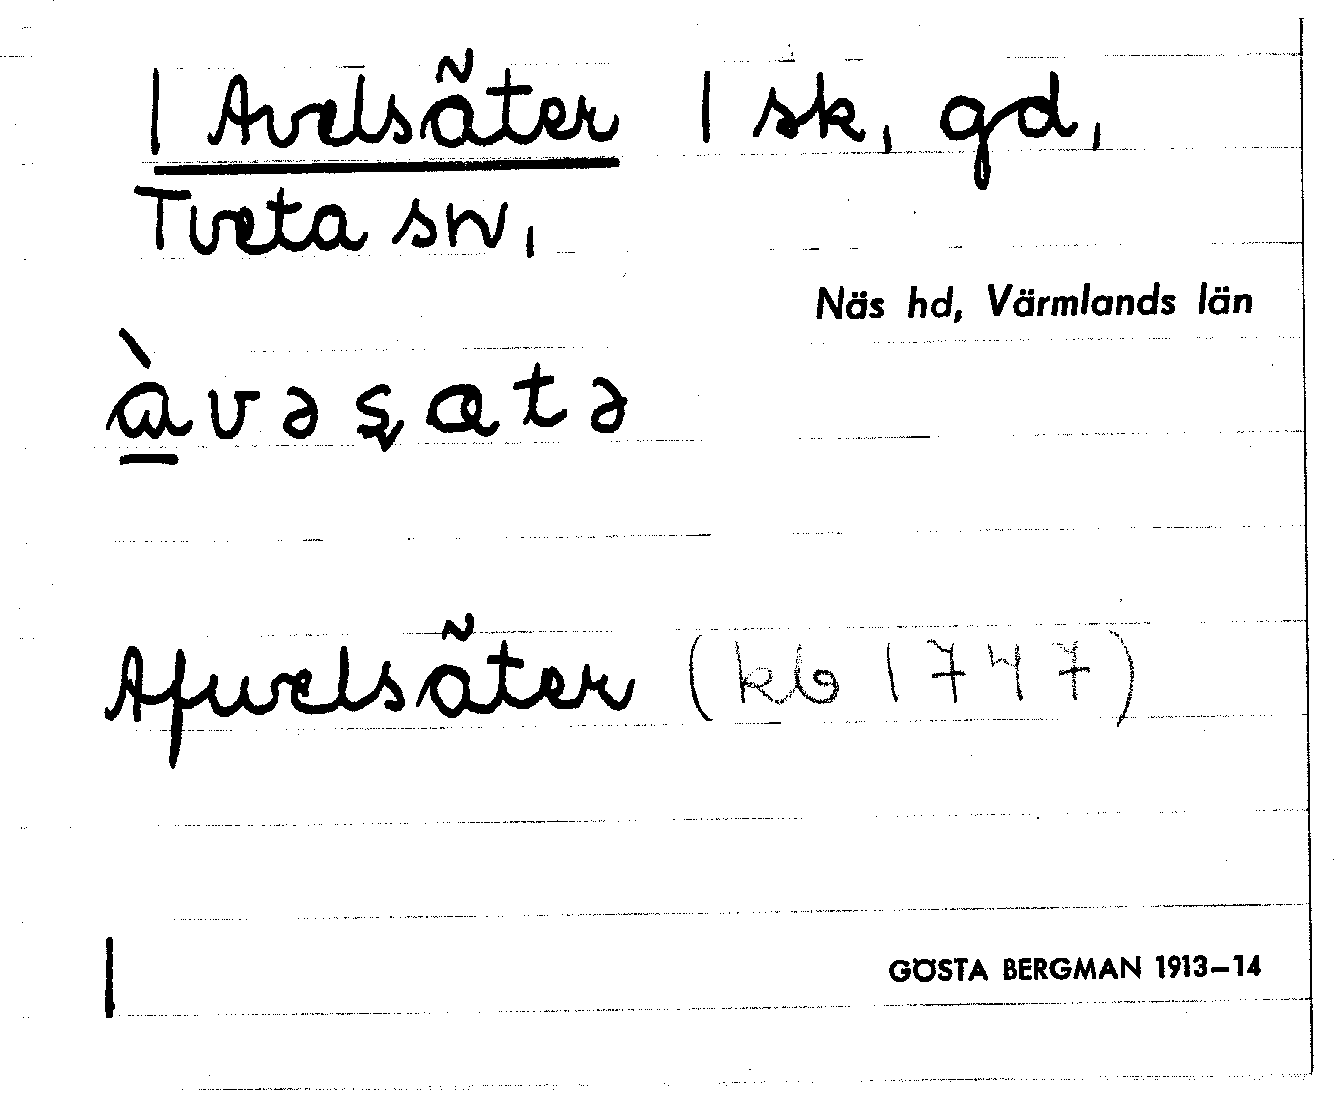 | Avelsäter | sk, gd,
Tveta sn,
Näs hd, Värmlands län
àvəʂatə
Afwelsäter (kb 1747)
GÖSTA BERGMAN 1913–14